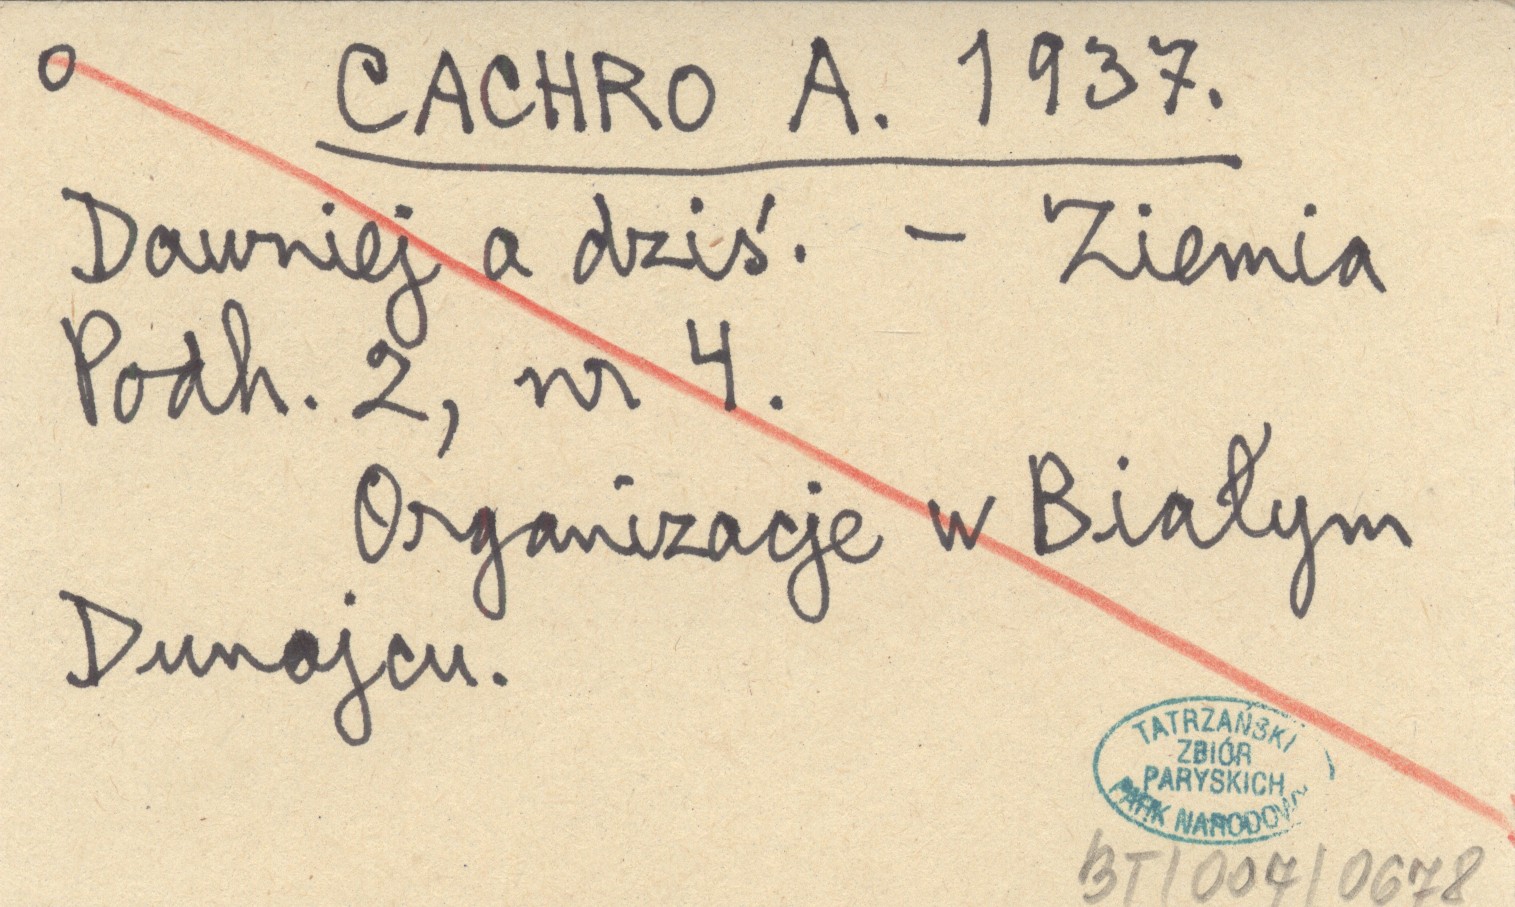 CACHRO A. 1937.
Dawniej a dziś. – Ziemia
Podh. 2, nr 4.
Organizacje w Białym
Dunajcu.
TATRZAŃSKI
ZBIÓR
PARYSKICH
PARK NARODOWY
BT/007/0678